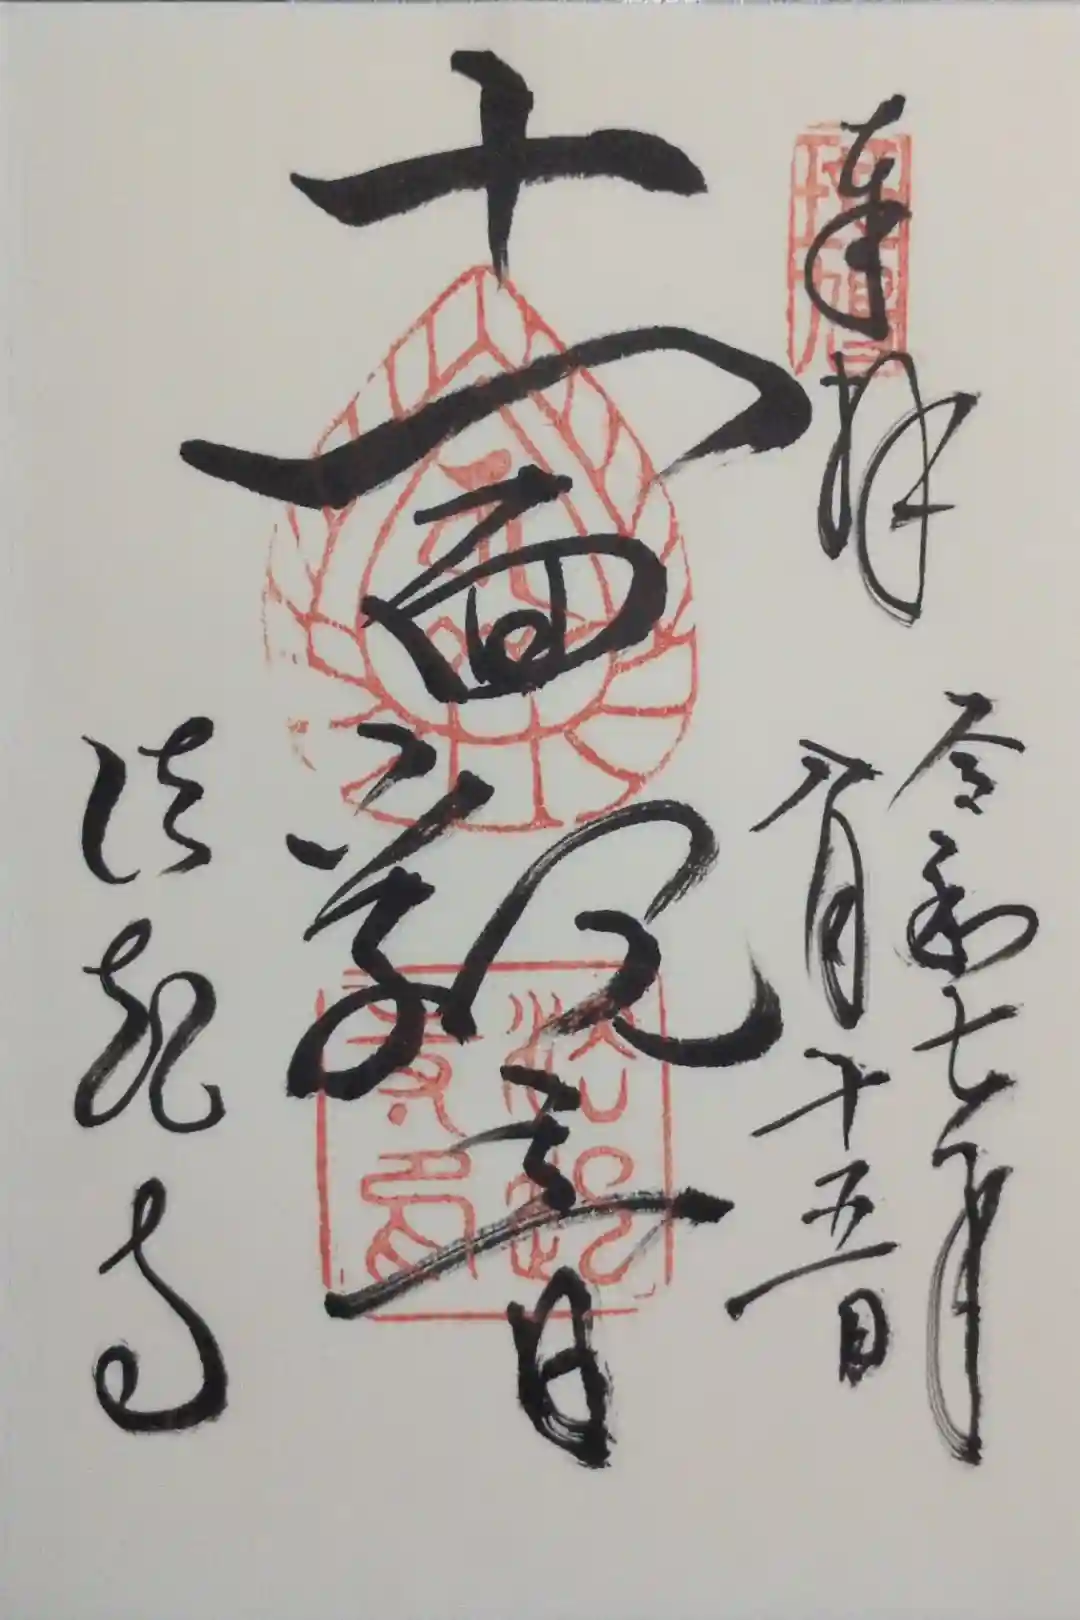 奉拝
令和七年
八月十五日
十一面観音
法龍寺